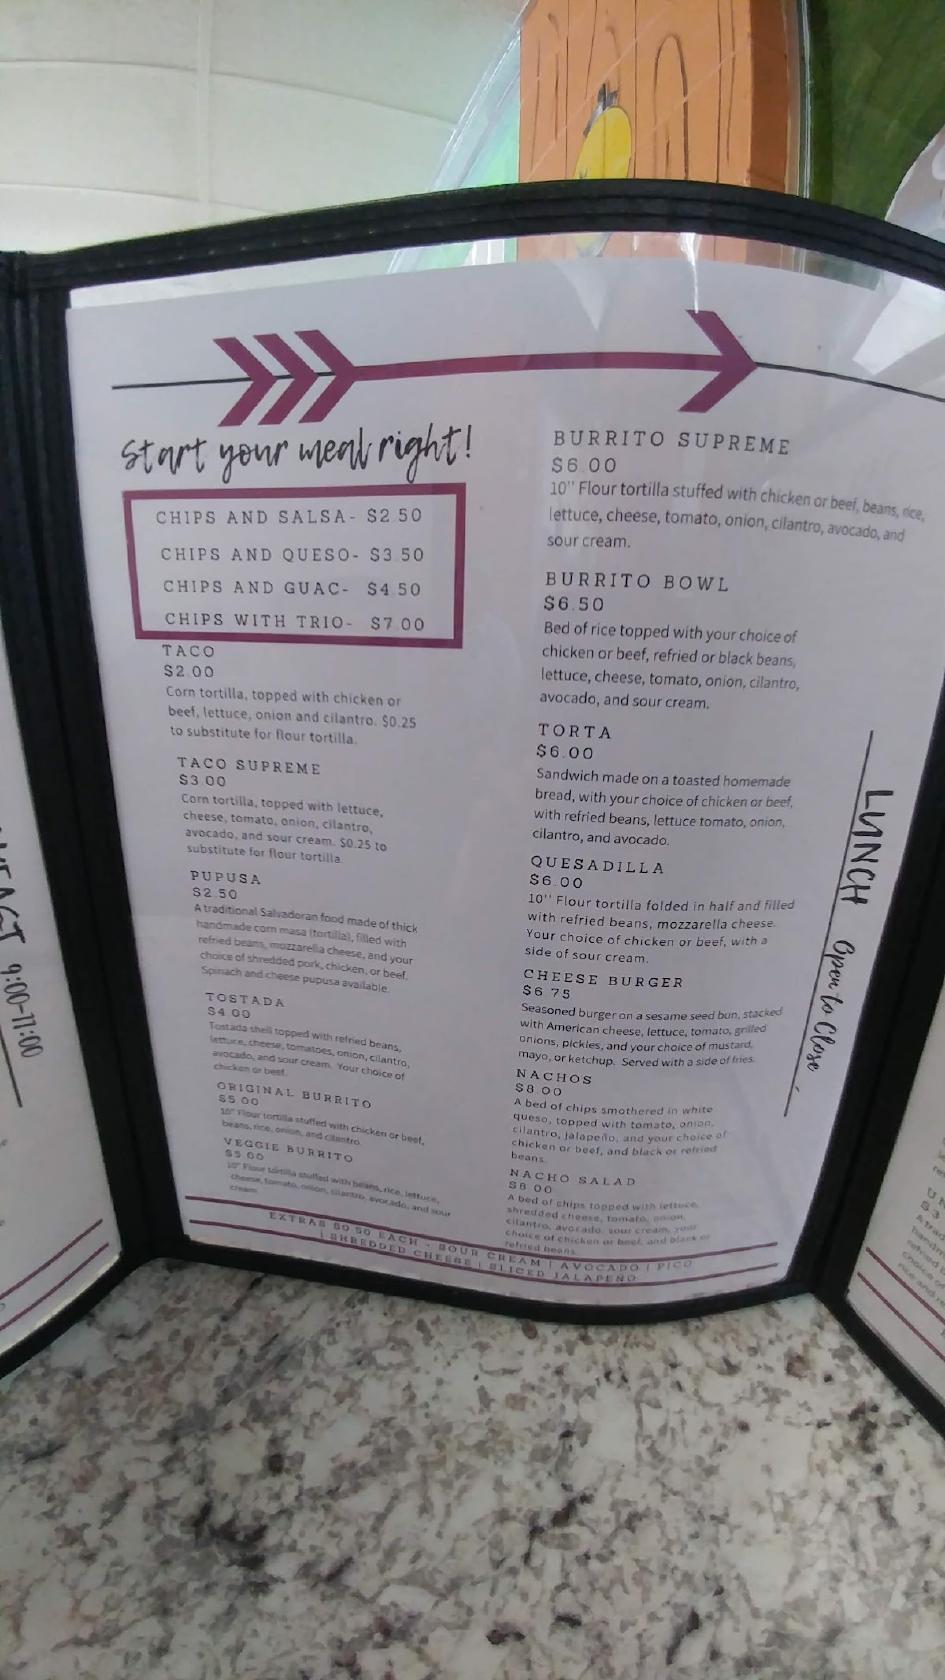 Start your meal right!
CHIPS AND SALSA- $2.50
CHIPS AND QUESO- $3.50
CHIPS AND GUAC- $4.50
CHIPS WITH TRIO- $7.00
TACO
$2.00
Corn tortilla, topped with chicken or
beef, lettuce, onion and cilantro. $0.25
to substitute for flour tortilla.
TACO SUPREME
$3.00
Corn tortilla, topped with lettuce,
cheese, tomato, onion, cilantro,
avocado, and sour cream. $0.25 to
substitute for flour tortilla.
PUPUSA
$2.50
A traditional Salvadoran food made of thick
handmade corn masa (tortilla), filled with
refried beans, mozzarella cheese, and your
choice of shredded pork, chicken, or beef.
Spinach and cheese pupusa available.
TOSTADA
$4.00
Tostada shell topped with refried beans,
lettuce, cheese, tomatoes, onion, cilantro,
avocado, and sour cream. Your choice of
chicken or beef.
ORIGINAL BURRITO
$5.00
10" Flour tortilla stuffed with chicken or beef,
beans, rice, onion, and cilantro.
VEGGIE BURRITO
$5.00
10" Flour tortilla stuffed with beans, rice, lettuce,
cheese, tomato, onion, cilantro, avocado, and sour
cream.
BURRITO SUPREME
$6.00
10" Flour tortilla stuffed with chicken or beef, beans, rice,
lettuce, cheese, tomato, onion, cilantro, avocado, and
sour cream.
BURRITO BOWL
$6.50
Bed of rice topped with your choice of
chicken or beef, refried or black beans,
lettuce, cheese, tomato, onion, cilantro,
avocado, and sour cream.
TORTA
$6.00
Sandwich made on a toasted homemade
bread, with your choice of chicken or beef,
with refried beans, lettuce tomato, onion,
cilantro, and avocado.
QUESADILLA
$6.00
10" Flour tortilla folded in half and filled
with refried beans, mozzarella cheese.
Your choice of chicken or beef, with a
side of sour cream.
CHEESE BURGER
$6.75
Seasoned burger on a sesame seed bun, stacked
with American cheese, lettuce, tomato, grilled
onions, pickles, and your choice of mustard,
mayo, or ketchup. Served with a side of fries.
NACHOS
$8.00
A bed of chips smothered in white
queso, topped with tomato, onion,
cilantro, jalapeño, and your choice of
chicken or beef, and black or refried
beans.
NACHO SALAD
$8.00
A bed of chips topped with lettuce,
shredded cheese, tomato, onion,
cilantro, avocado, sour cream, your
choice of chicken or beef, and black or
refried beans.
EXTRAS $0.50 EACH - SOUR CREAM | AVOCADO | PICO
| SHREDDED CHEESE | SLICED JALAPEÑO
LUNCH Open to Close
9:00-11:00